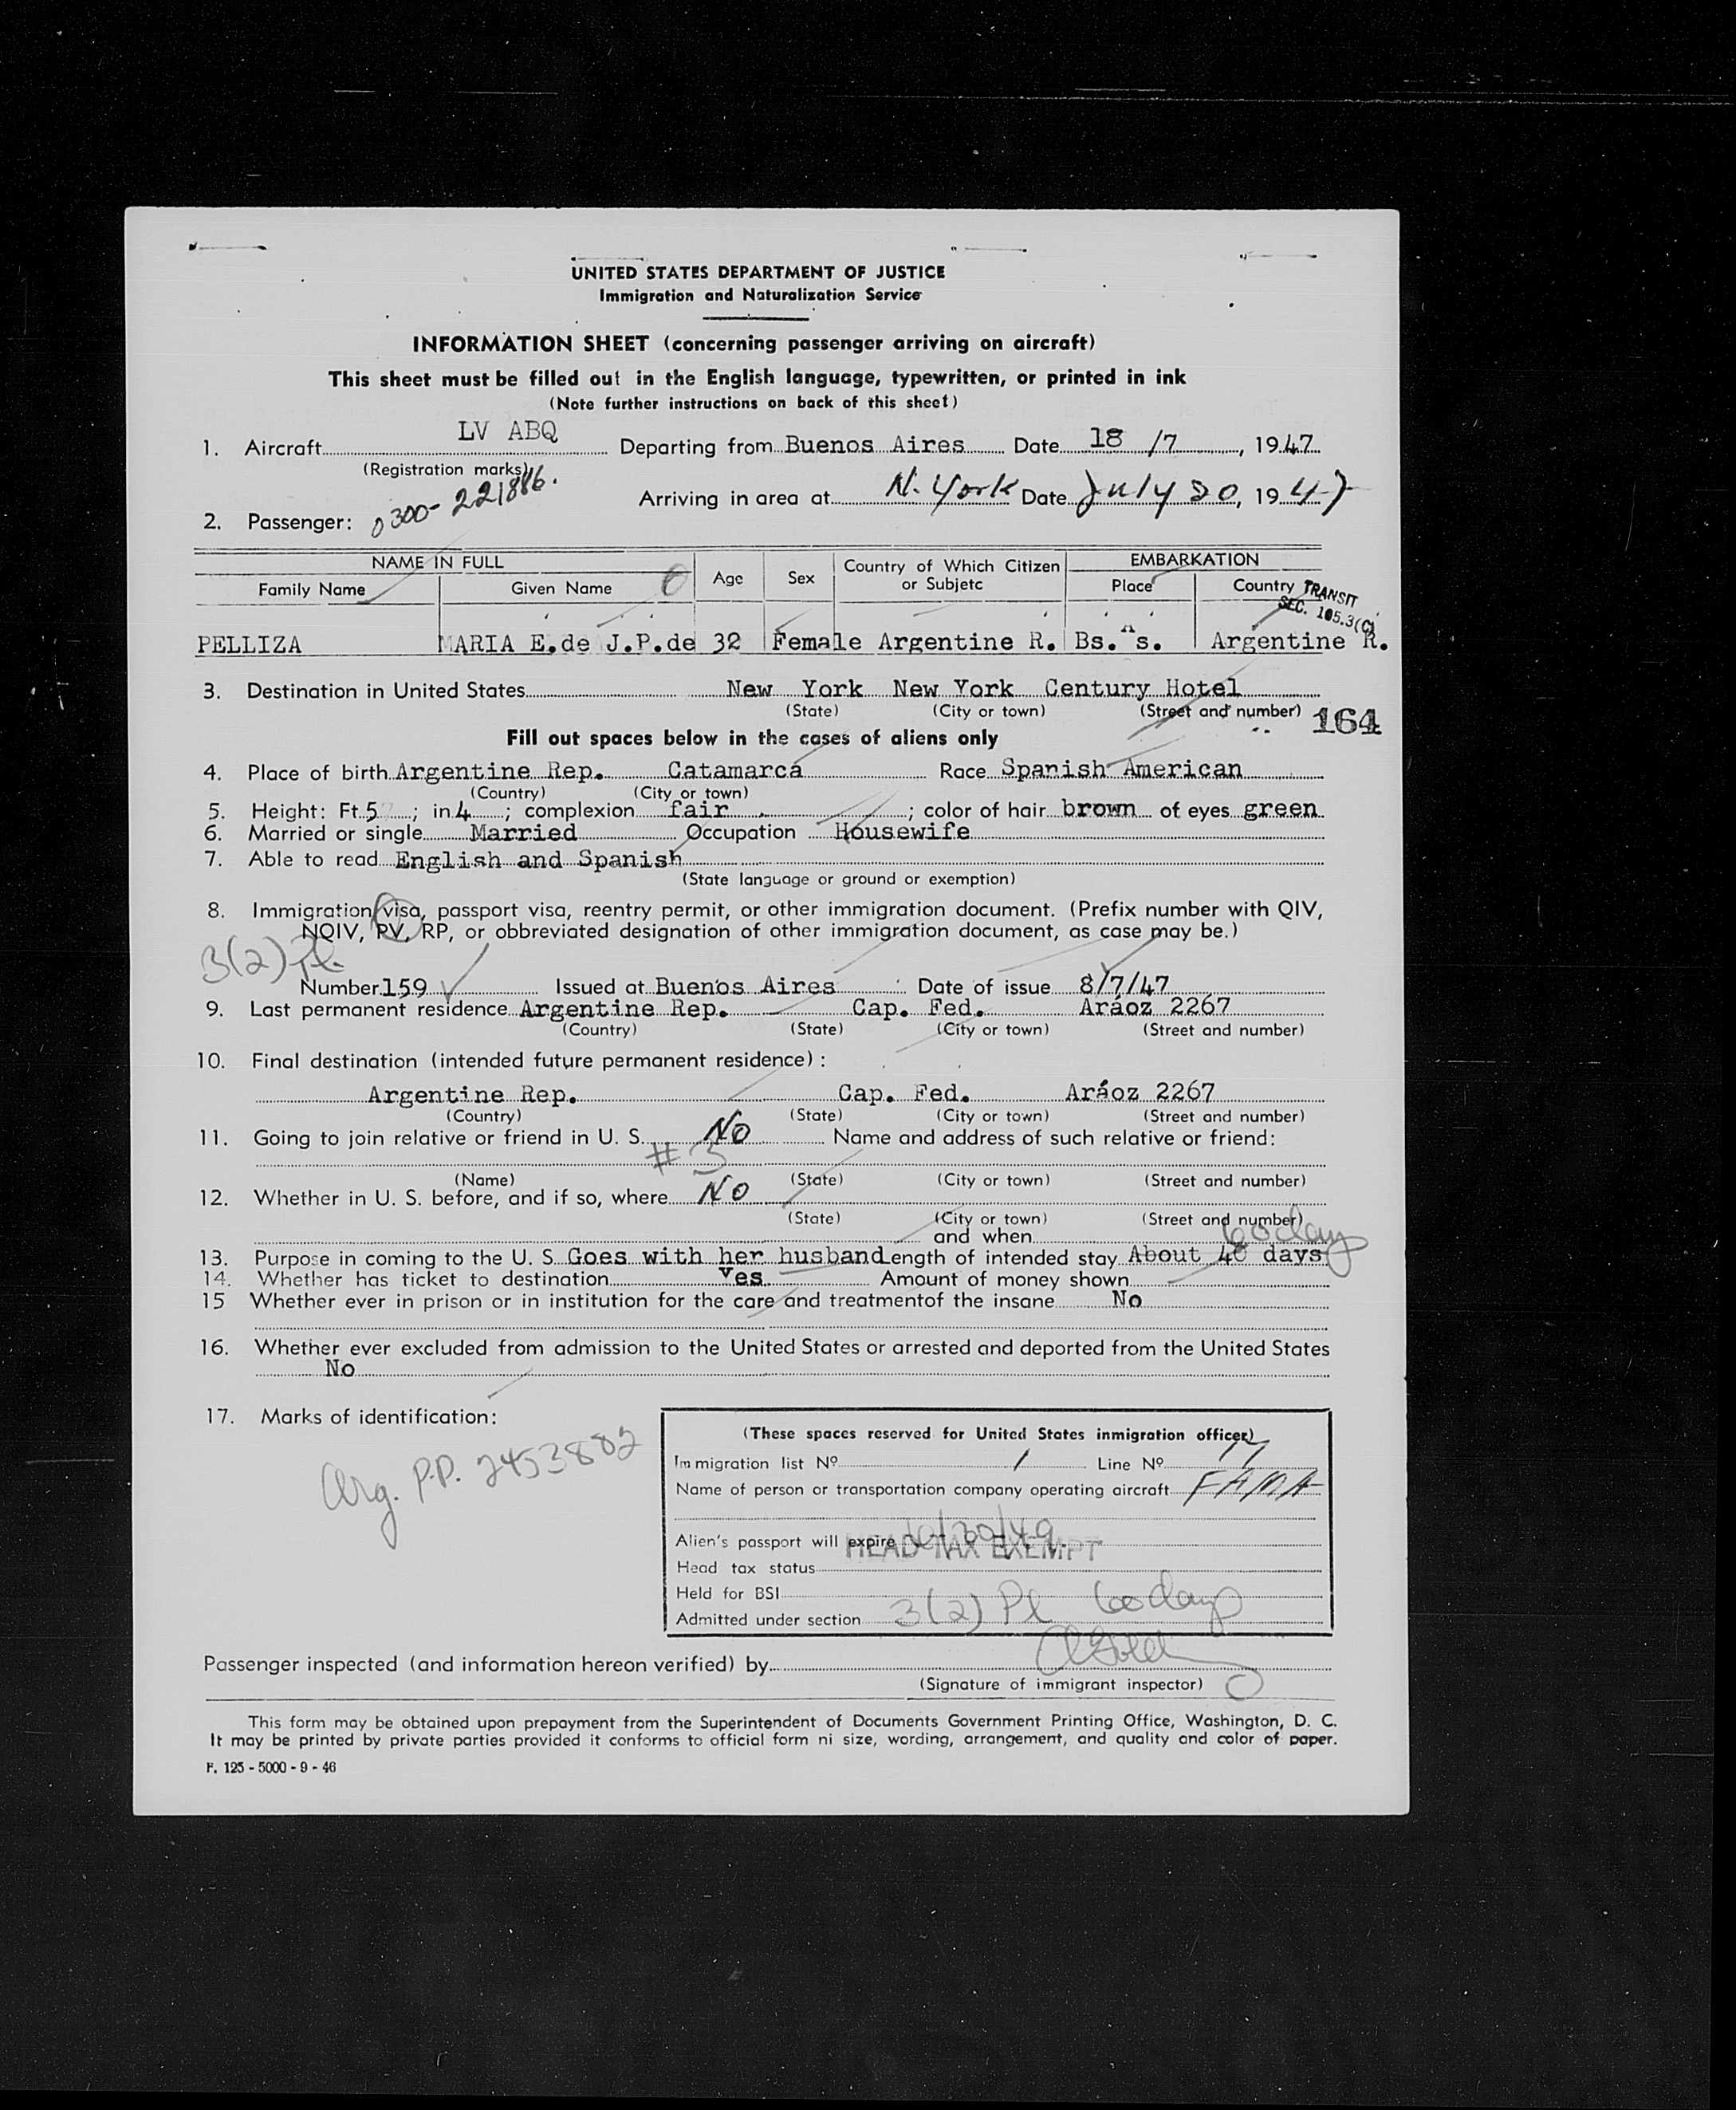 UNITED STATES DEPARTMENT OF JUSTICE
Immigration and Naturalization Service
INFORMATION SHEET (concerning passenger arriving on aircraft)
This sheet must be filled out in the English language, typewritten, or printed in ink
(Note further instructions on back of this sheet)
1. Aircraft LV ABQ Departing from Buenos Aires Date 18 /7, 1947
(Registration marks)
Arriving in area at N. York Date July 20, 1947
2. Passenger: 0300-221886.
NAME IN FULL Age Sex Country of Which Citizen or Subjetc EMBARKATION
Family Name Given Name Place Country
TRANSIT
SEC. 105.3(C)
PELLIZA MARIA E.de J.P.de 32 Female Argentine R. Bs. As. Argentine R.
3. Destination in United States New York New York Century Hotel
(State) (City or town) (Street and number) 164
Fill out spaces below in the cases of aliens only
4. Place of birth Argentine Rep. Catamarca Race Spanish American
(Country) (City or town)
5. Height: Ft 5; in 4; complexion fair; color of hair brown of eyes green
6. Married or single Married Occupation Housewife
7. Able to read English and Spanish
(State language or ground or exemption)
8. Immigration visa, passport visa, reentry permit, or other immigration document. (Prefix number with QIV,
NQIV, PV, RP, or obbreviated designation of other immigration document, as case may be.)
3(2) Pl.
Number 159 Issued at Buenos Aires Date of issue 8/7/47
9. Last permanent residence Argentine Rep. Cap. Fed. Aráoz 2267
(Country) (State) (City or town) (Street and number)
10. Final destination (intended future permanent residence):
Argentine Rep. Cap. Fed. Aráoz 2267
(Country) (State) (City or town) (Street and number)
11. Going to join relative or friend in U. S. No Name and address of such relative or friend:
# 3
(Name) (State) (City or town) (Street and number)
12. Whether in U. S. before, and if so, where No
(State) (City or town) (Street and number)
and when
60 days
13. Purpose in coming to the U. S. Goes with her husband Length of intended stay About 40 days
14. Whether has ticket to destination Yes Amount of money shown
15 Whether ever in prison or in institution for the care and treatmentof the insane No
16. Whether ever excluded from admission to the United States or arrested and deported from the United States
No
17. Marks of identification:
Arg. P.P. 2453882
(These spaces reserved for United States inmigration officer)
Immigration list Nº 1 Line Nº 17
Name of person or transportation company operating aircraft FAMA
Alien's passport will expire
HEAD TAX EXEMPT
Head tax status
Held for BSI
Admitted under section 3(2) Pl 60 days
Passenger inspected (and information hereon verified) by
(Signature of immigrant inspector)
This form may be obtained upon prepayment from the Superintendent of Documents Government Printing Office, Washington, D. C.
It may be printed by private parties provided it conforms to official form ni size, wording, arrangement, and quality and color of paper.
F. 125 - 5000 - 9 - 46